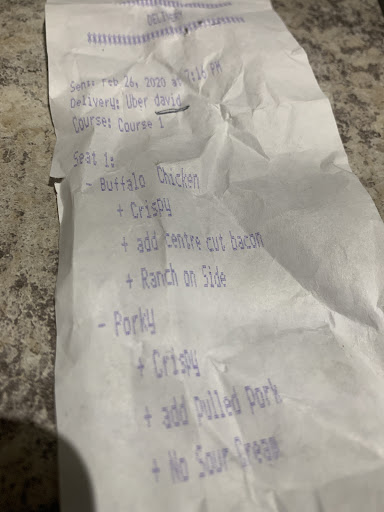 DELIVERY
Sent: Feb 26, 2020 at 7:16 PM
Delivery: Uber david
Course: Course 1
Seat 1:
- Buffalo Chicken
+ Crispy
+ add centre cut bacon
+ Ranch on Side
- Porky
+ Crispy
+ add Pulled Pork
+ No Sour Cream